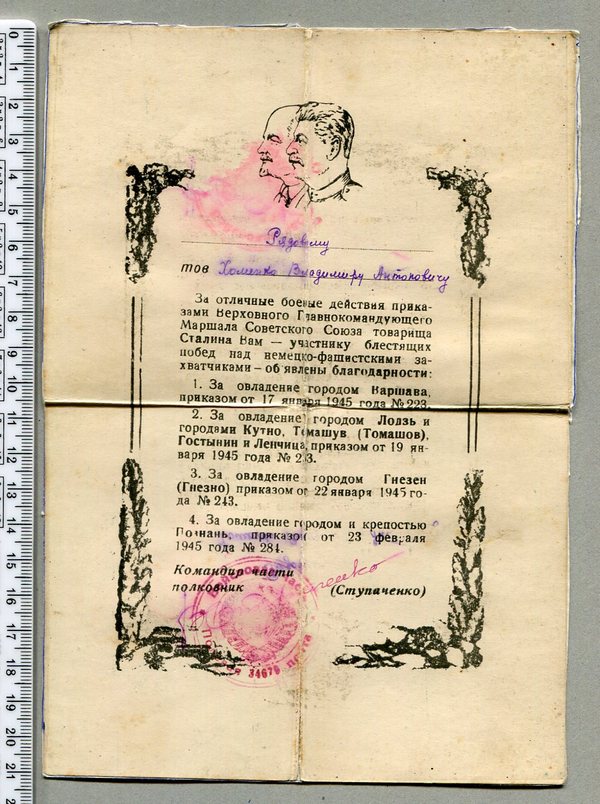 Рядовому
тов Хоменко Владимиру Антоновичу
За отличные боевые действия прика-
зами Верховного Главнокомандующего
Маршала Советского Союза товарища
Сталина Вам — участнику блестящих
побед над немецко-фашистскими за-
хватчиками — объявлены благодарности:
1. За овладение городом Варшава,
приказом от 17 января 1945 года № 223.
2. За овладение городом Лодзь и
городами Кутно, Томашув (Томашов),
Гостынин и Ленчица, приказом от 19 ян-
варя 1945 года №
3. За овладение городом Гнезен
(Гнезно) приказом от 22 января 1945 го-
да № 243.
4. За овладение городом и крепостью
Познань, приказом от 23 февраля
1945 года № 284.
Командир части
полковник (Ступаченко)
34676
0 1 2 3 4 5 6 7 8 9 10 11 12 13 14 15 16 17 18 19 20 21